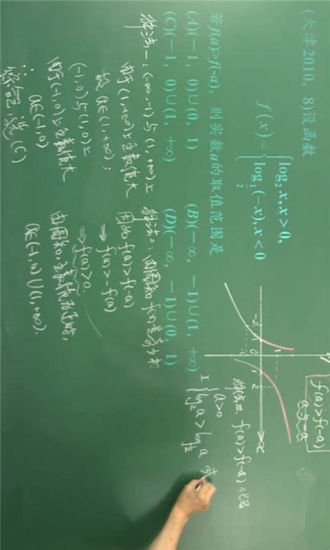 (天津2010, 8)设函数
f(x)={log₂x, x>0,
log½(-x), x<0
若f(a)>f(-a), 则实数a的取值范围是
(A)(-1, 0)∪(0, 1) (B)(-∞, -1)∪(1, +∞)
(C)(-1, 0)∪(1, +∞) (D)(-∞, -1)∪(0, 1)
解法一: (-∞,-1)与(1,+∞)上
由于(1,+∞)上函数值大
故 a∈(1,+∞);
(-1,0)与(0,1)上
由于(-1,0)上函数值大
a∈(-1,0)
综合选(C)
解法二: 由图知 f(x)是奇函数
因此 f(a)>f(-a)
⇒ f(a)>-f(a)
⇒ f(a)>0,
由图知,
a∈(-1,0)∪(1,+∞).
f(a)>f(-a)
a与-a
解法三 f(a)>f(-a)
I {a>0
log₂a>log½a 或
-1
0
1
x